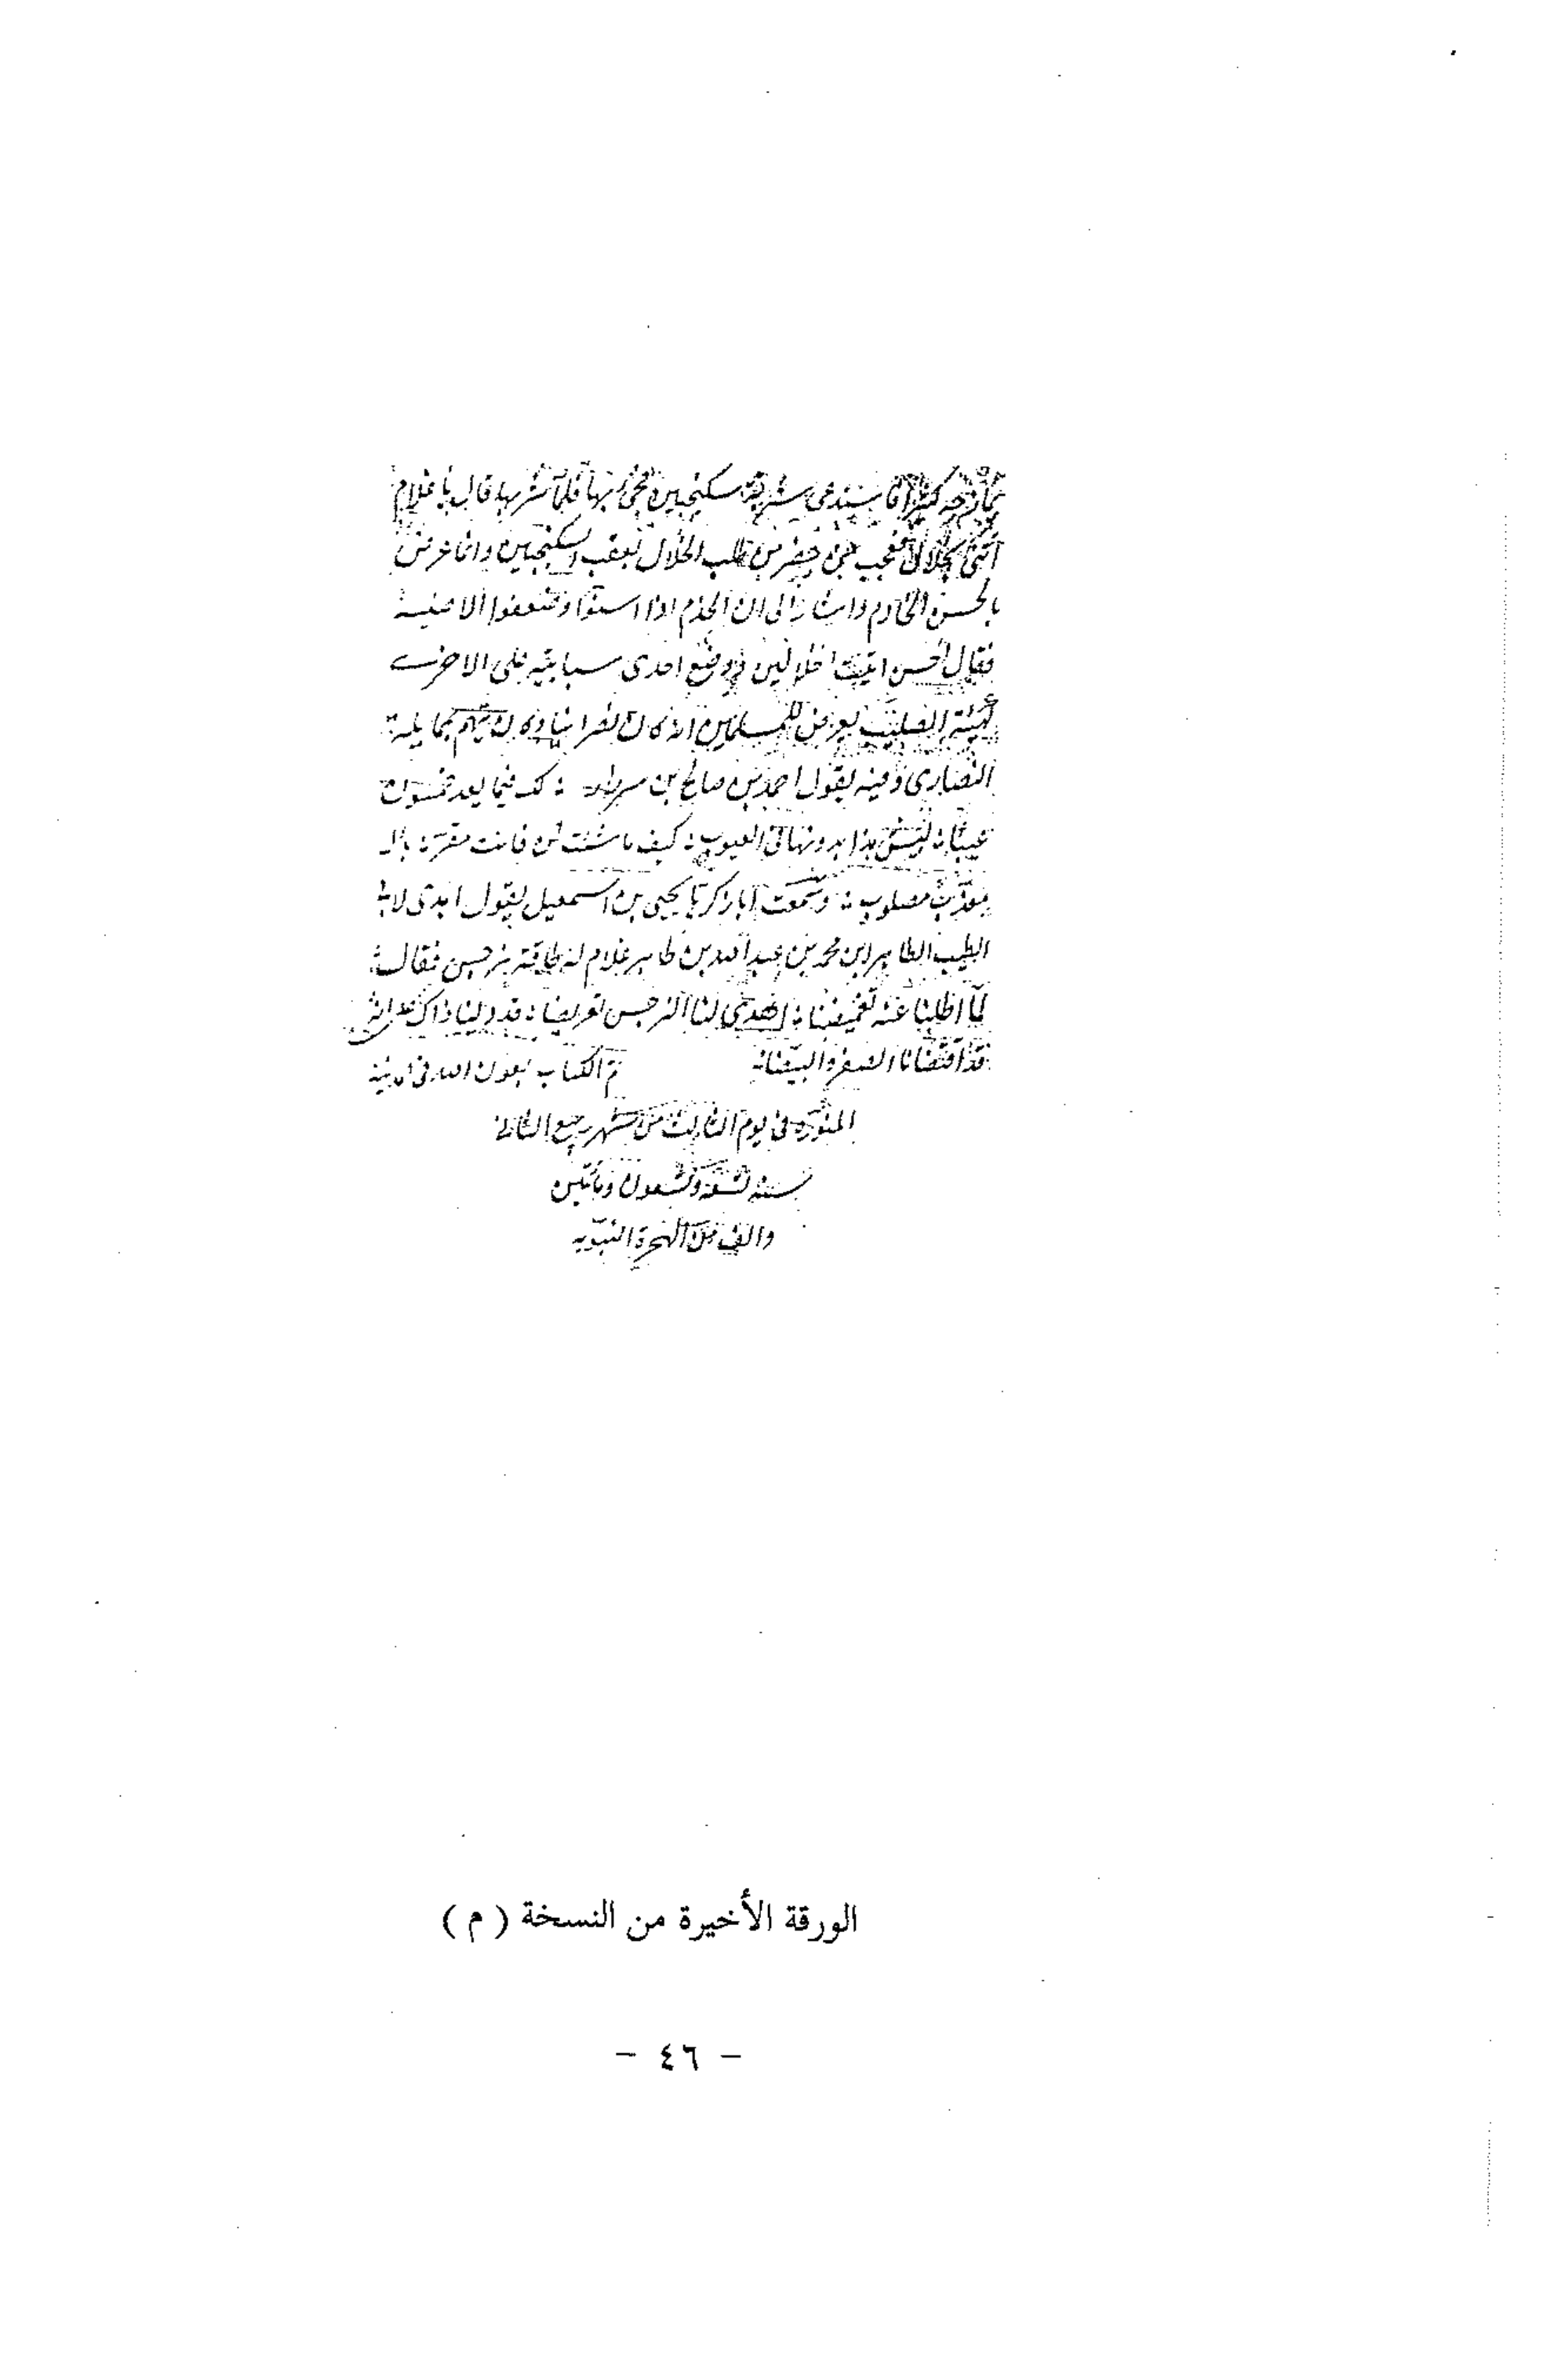 كثيرا فاستدعى شربة سكنجبين فجئ بها فلما شربها قال يا غلام
ائتني بخلال فعجب من حضر من طلب الخلال بعقب السكنجبين وانما عرض
بالحسن الخادم واشار الى ان الخدم اذا اسنوا وضعفوا
فقال الحسن اخلالين ووضع احدى سبابتيه على الاخرى
كهيئة الصليب يعرض للمسلمين انه كان نصرانيا
النصارى وفيه يقول احمد بن صالح بن : لك فيما يعد
عيبا : ليس هذا بدونها في العيوب : كيف ما شئت كن فانت مقر : بال
معذب مصلوب : وسمعت ابا زكريا يحيى بن اسمعيل يقول اهدى لابي
الطيب الطاهر ابن محمد بن عبد الله بن طاهر غلام له طاقة نرجس فقال :
لما اطلنا عنه تغميضا : اهدى لنا النرجس تعريضا : فدلنا ذاك على انه
قد اقتضانا الصفر والبيضا : تم الكتاب بعون الله في مدينة
المنورة في يوم الثالث من شهر ربيع الثاني
سنة تسعة وتسعون ومأتين
والف من الهجرة النبوية
الورقة الأخيرة من النسخة ( م )
- ٤٦ -